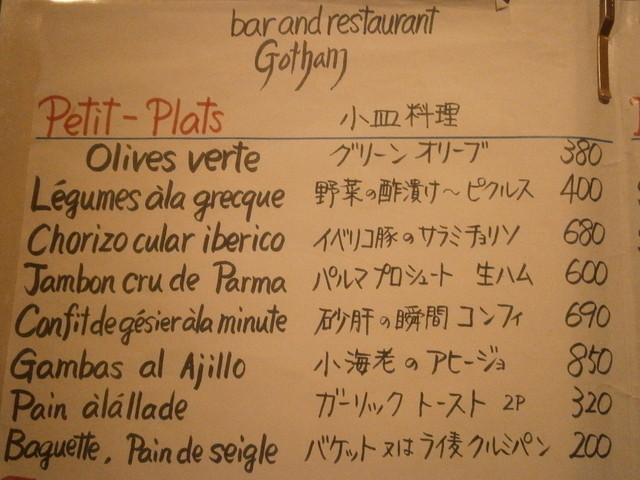 bar and restaurant
Gotham
Petit-Plats 小皿料理
Olives verte グリーン オリーブ 380
Légumes àla grecque 野菜の酢漬け〜ピクルス 400
Chorizo cular iberico イベリコ豚のサラミチョリソ 680
Jambon cru de Parma パルマプロシュート 生ハム 600
Confit de gésier àla minute 砂肝の瞬間コンフィ 690
Gambas al Ajillo 小海老のアヒージョ 850
Pain àlállade ガーリック トースト 2P 320
Baguette, Pain de seigle バケット又はライ麦クルミパン 200